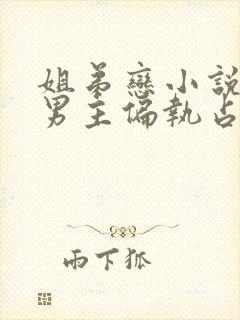 姐弟戀小說
男主偏執占
雨下狐